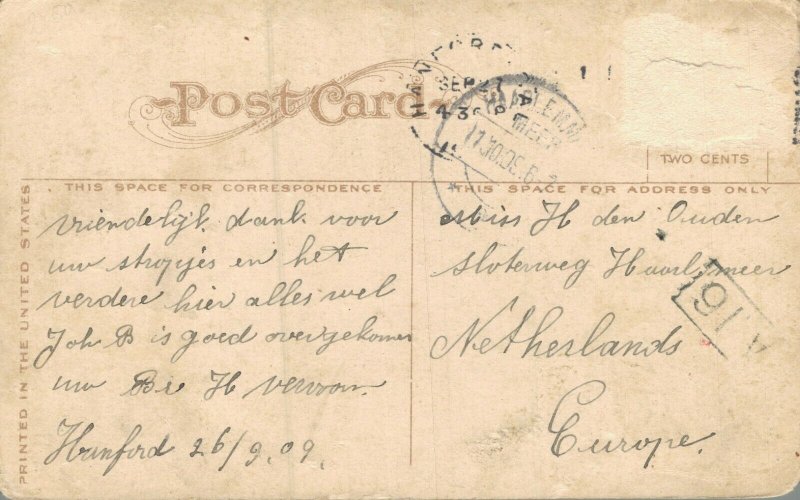 Post Card
HANFORD
SEP 27
430 P
HAARLEMMER
MEER
TWO CENTS
THIS SPACE FOR CORRESPONDENCE
THIS SPACE FOR ADDRESS ONLY
PRINTED IN THE UNITED STATES
vriendelijk dank voor
uw stropjes en het
verdere hier alles wel
Joh B is goed overgekomen
uw Br H
Hanford 26/9.09.
Miss H den Ouden
Sloterweg Haarl, meer
Netherlands
Europe.
A 16